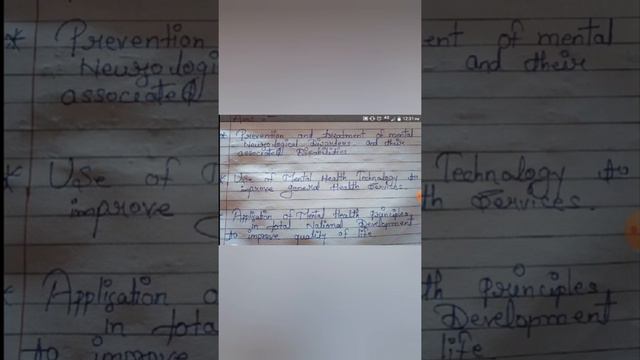 12:31 PM
* Prevention and treatment of mental
Neurological disorders and their
associated Disabilities
* Use of Mental Health Technology to
improve general Health Services.
Application of Mental Health principles
in total National Development
to improve quality of life